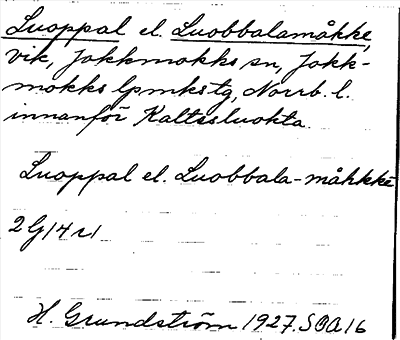 Luoppal el. Luobbalamåkke,
vik, Jokkmokks sn, Jokk-
mokks lpmkstg, Norrb. l.
innanför Kaltisluokta.
Luoppal el. Luobbala-måhkkē
2G14r1
H. Grundström 1927. SOA16